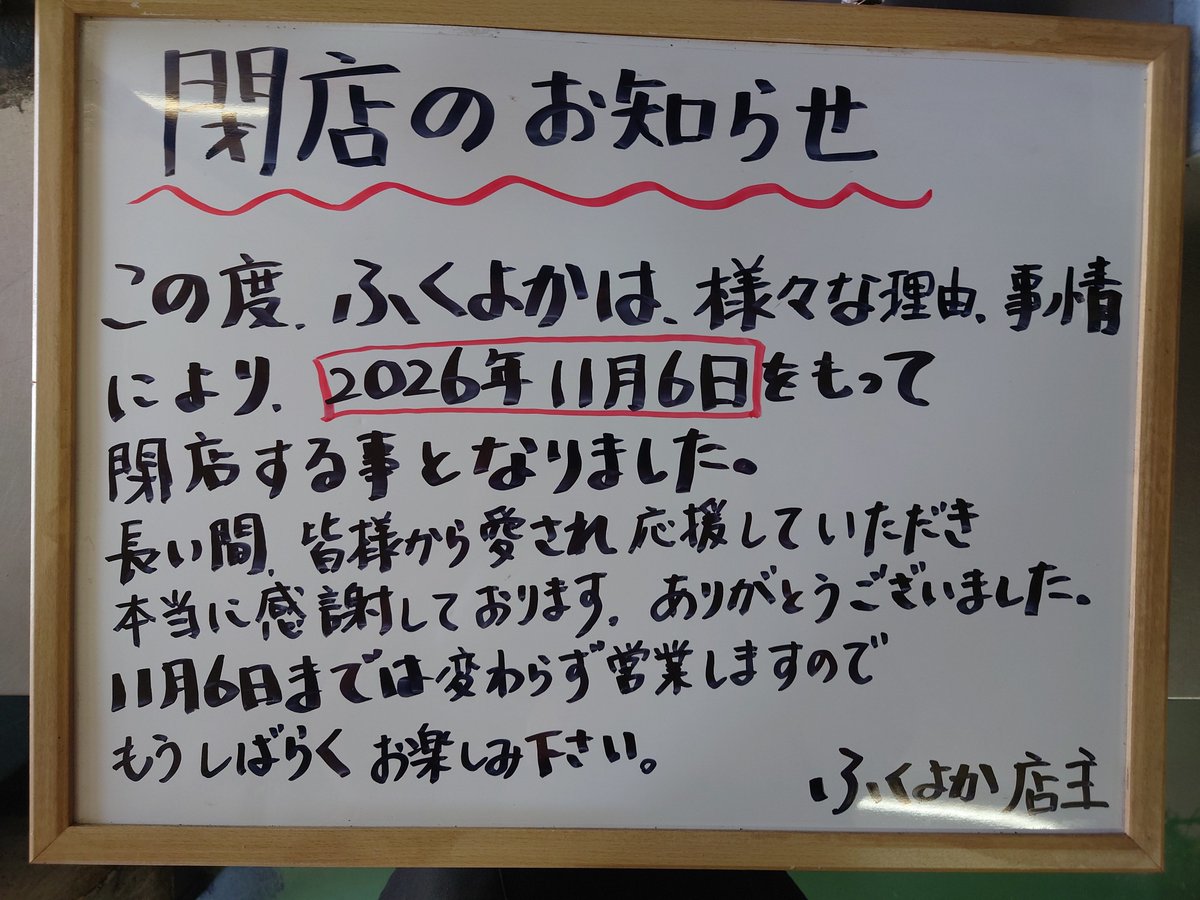 閉店のお知らせ
この度、ふくよかは、様々な理由、事情
により、2026年11月6日をもって
閉店する事となりました。
長い間、皆様から愛され応援していただき
本当に感謝しております。ありがとうございました。
11月6日までは変わらず営業しますので
もうしばらくお楽しみ下さい。
ふくよか店主